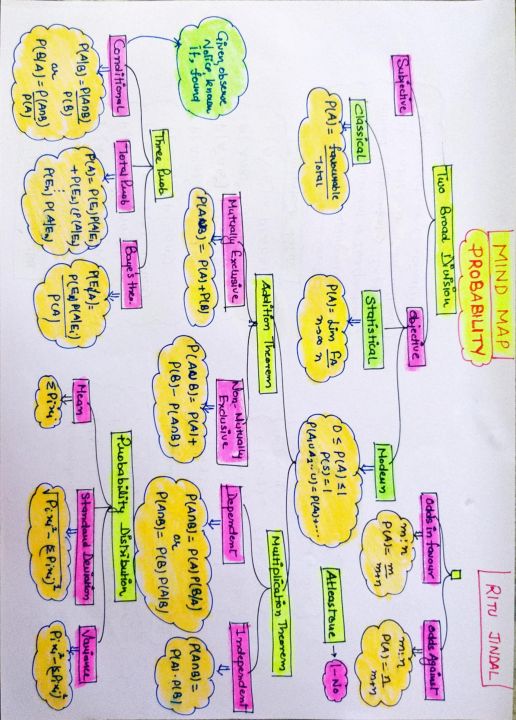 MIND MAP
PROBABILITY
RITU JINDAL
Two Broad Division
Subjective
Objective
Classical
P(A) = favourable
Total
Statistical
P(A) = lim
n→∞
Modern
0 ≤ P(A) ≤ 1
P(S) = 1
P(A₁∪A₂...∪) = P(A₁)+...
Odds in favour
m:n
P(A) = m
m+n
Odds Against
m:n
P(A) = n
m+n
Atleast one → 1-No
Addition Theorem
Mutually Exclusive
P(AUB) = P(A)+P(B)
Non-Mutually
Exclusive
P(AUB) = P(A)+
P(B) - P(A∩B)
Multiplication Theorem
Dependent
P(A∩B) = P(A)P(B/A)
or
P(A∩B) = P(B)P(A|B)
Independent
P(A∩B) =
P(A).P(B)
Three Prob
Given, observe
Notice, known
if, found
Conditional
P(A|B) = P(A∩B)
P(B)
or
P(B/A) = P(A∩B)
P(A)
Total Prob
P(A) = P(E₁)P(A|E₁)
P(Eₙ) P(A|Eₙ)
Baye's theo.
P(E₁/A) =
P(E₁)P(A|E₁)
P(A)
Probability Distribution
Mean
Σpixi
Standard Deviation
√Pixi² - (ΣPixi)²
Variance
Pixi² - (ΣPixi)²